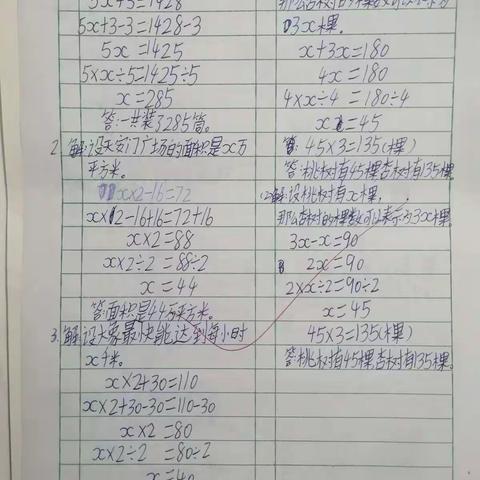 5x+3=1428
5x+3-3=1428-3
5x=1425
5×x÷5=1425÷5
x=285
答:一共装3285筒。
2.解:设天安门广场的面积是x万
平方米。
x×2-16=72
x×2-16+16=72+16
x×2=88
x×2÷2=88÷2
x=44
答:面积是44万平方米。
3.解:设大象最快能达到每小时
x千米。
x×2+30=110
x×2+30-30=110-30
x×2=80
x×2÷2=80÷2
x=40
3x棵。
x+3x=180
4x=180
4×x÷4=180÷4
x=45
答:45×3=135(棵)
答:桃树有45棵杏树有135棵
(2)解:设桃树有x棵,
那么杏树的棵数可以表示为3x棵。
3x-x=90
2x=90
2×x÷2=90÷2
x=45
45×3=135(棵)
答:桃树有45棵杏树有135棵。